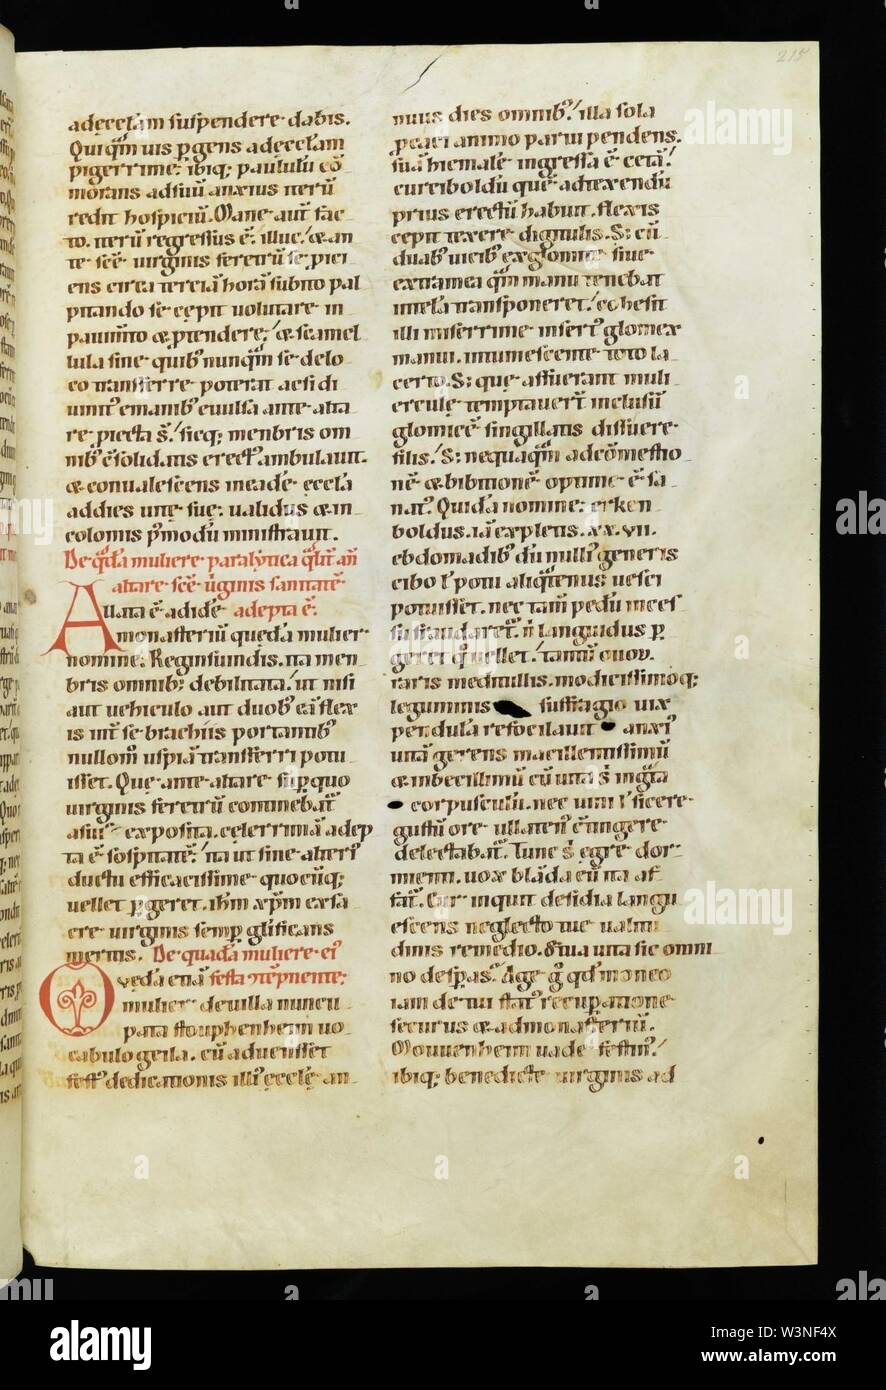 215
ad ęccłam suspendere dabis.
Qui quā uis ꝑgens ad ęccłam
pigerrime; ibiq; paululū cō
morans ad suū anxius iterū
redit hospiciū. Mane aut̄ fac
to. iterū regressus ē illuc. & an
te scē uirginis feretrū se ꝓici
ens circa terciā horā subito pal
pitando se cepit uolutare in
pauim̄to & ꝑtendere; & scamel
lula sine quib; nunquā se de lo
co transferre poterat ac si di
uinit' e manib; euulsa ante alta
re ꝓiecta s̄. sicq; menbris om
nib; c̄solidatis erect' ambulauit.
& conualescens in eadē ęccła
ad dies uitę suę ualidus & in
colomis p'modū ministrauit.
De q̄dā muliere paralytica
altare scē uginis sanitatē
Allata ē ad idē adepta ē.
monasteriū quedā mulier
nomine Reginsundis. ita men
bris omnib; debilitata. ut nisi
aut uehiculo aut duob; eā flex
is int̄ se brachiis portantib;
nullom̄ uspiā transferri potu
isset. Que ante altare sup quo
uirginis feretrū continebat̄
a suis exposita. celerrimā adep
ta ē sospitatē; ita ut sine alteri'
ductu efficacissime quocūq;
uellet ꝑgeret. ihm xp̄m ex sa
crę uirginis semꝑ glificans
meritis. De quadā muliere
Quedā etiā festa
mulier de uilla nuncu
pata stouphenheim uo
cabulo geila. cū aduenisset
fest' dedicationis illi' ęcclę an
nuus dies omnib;. illa sola
ꝓcaci animo parui pendens.
suā hiemalē ingressa ē cetā.
curciboldū quē ad texendū
prius erectū habuit. flexis
cepit texere digitulis. S; cū
duab; uicib; ex glomice siue
ex tramea quā manu tenebat
in telā transponeret. cohesit
illi miserrime insert' glomex
manui. intumescente toto la
certo. S; que affuerant muli
erculę temptauert̄ inclusū
glomicē singillatis dissuere
filis. S; nequaquā ad
nē & bibitionē optime ē sa
nat'. Quidā nomine erken
boldus. iā expletis. xx. vii.
ebdomadib; dū nulli' generis
cibo ł potu aliq̄tenus uesci
potuisset. nec tam̄ pedū incess'
fraudaret̄. n̄ languidus ꝑ
geret q̄ uellet. tantū ouorū
raris medullis. modicissimoq;
leguminis suffragio uix
pendula refocilauit anxi'
uitā gerens macilentissimū
& inbecillimū cū uita s̄ ingta
corpusculū. nec uini ł sicerę
gustū ore ullaten' c̄tingere
delectabat̄. Tunc s̄ egre dor
mienti. uox blāda cū ita af
fat̄. Cur inquit desidia langu
escens neglecto tue ualitu
dinis remedio. & tua uita sic omni
no despas. Age g̊ qd̄ moneo
iam de tui stat' recuꝑatione
securus & ad monasteriū.
Mouuenheim uade festin'.
ibiq; benedictę uirginis ad
alamy
Image ID: W3NF4X
www.alamy.com